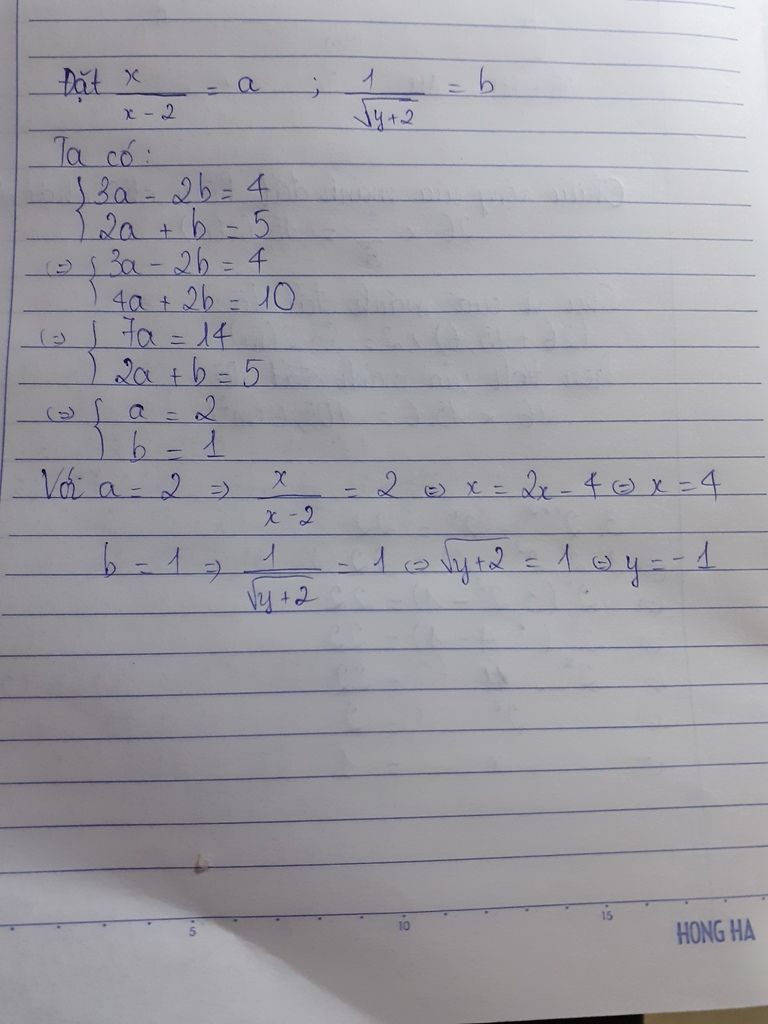 Đặt x/(x-2) = a ; 1/√(y+2) = b
Ta có:
{ 3a - 2b = 4
2a + b = 5
⇔ { 3a - 2b = 4
4a + 2b = 10
⇔ { 7a = 14
2a + b = 5
⇔ { a = 2
b = 1
Với a = 2 ⇒ x/(x-2) = 2 ⇔ x = 2x - 4 ⇔ x = 4
b = 1 ⇒ 1/√(y+2) = 1 ⇔ √(y+2) = 1 ⇔ y = -1
5 10 15
HONG HA